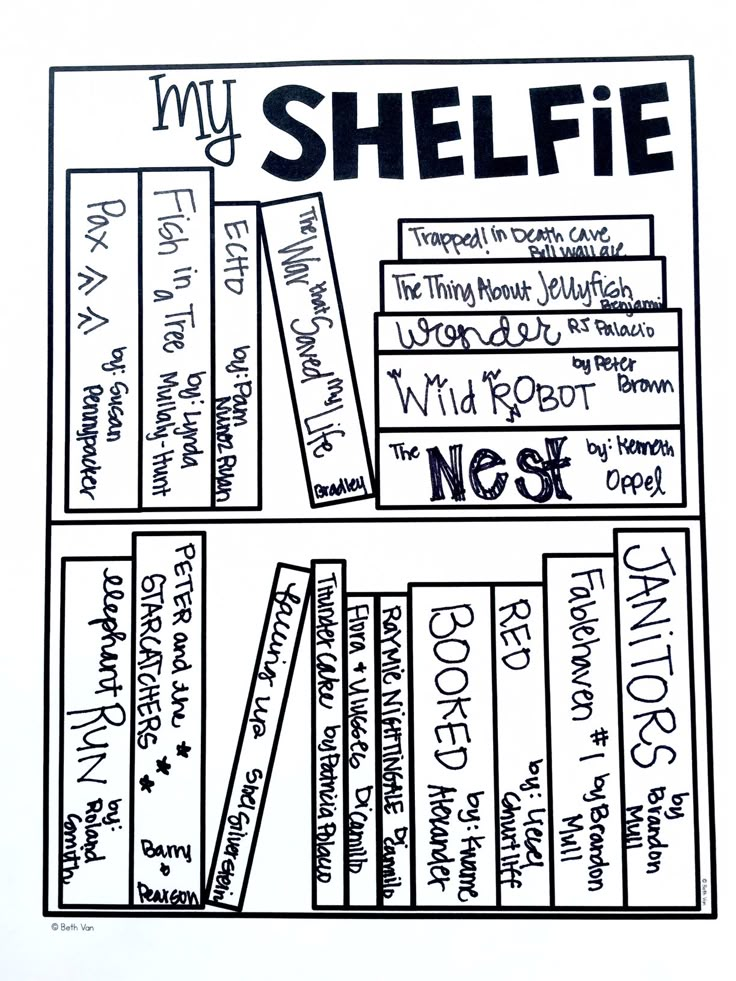 my SHELFiE
Pax
by: Susan
Pennypacker
Fish in
a Tree
by: Lynda
Mullaly-Hunt
ECHO
by: Pam
Nunoz Ryan
The War that Saved my Life
Bradley
Trapped! in Death Cave
Bill Wallace
The Thing About Jellyfish
Benjamin
Wonder RJ Palacio
Wild ROBOT
by Peter
Brown
The Nest
by: Kenneth
Oppel
elephant RUN
by:
Roland
Smith
PETER and the
STARCATCHERS
Barry
&
Pearson
Falling up Shel Silverstein
Thunder Cake by Patricia Polacco
Flora & Ulysses DiCamillo
RAYMIE NIGHTINGALE Di
Camillo
BOOKED
by: Kwame
Alexander
RED
by: Liesel
Shurtliff
Fablehaven #1
by Brandon
Mull
JANiTORS
by
Brandon
Mull
© Beth Van
© Beth Van